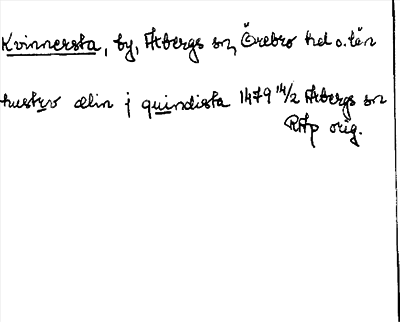 Kvinnersta, by, Ekbergs sn, Örebro hd o. län
hustro elin j quindista 1479 14/2 Ekbergs sn
RAp orig.